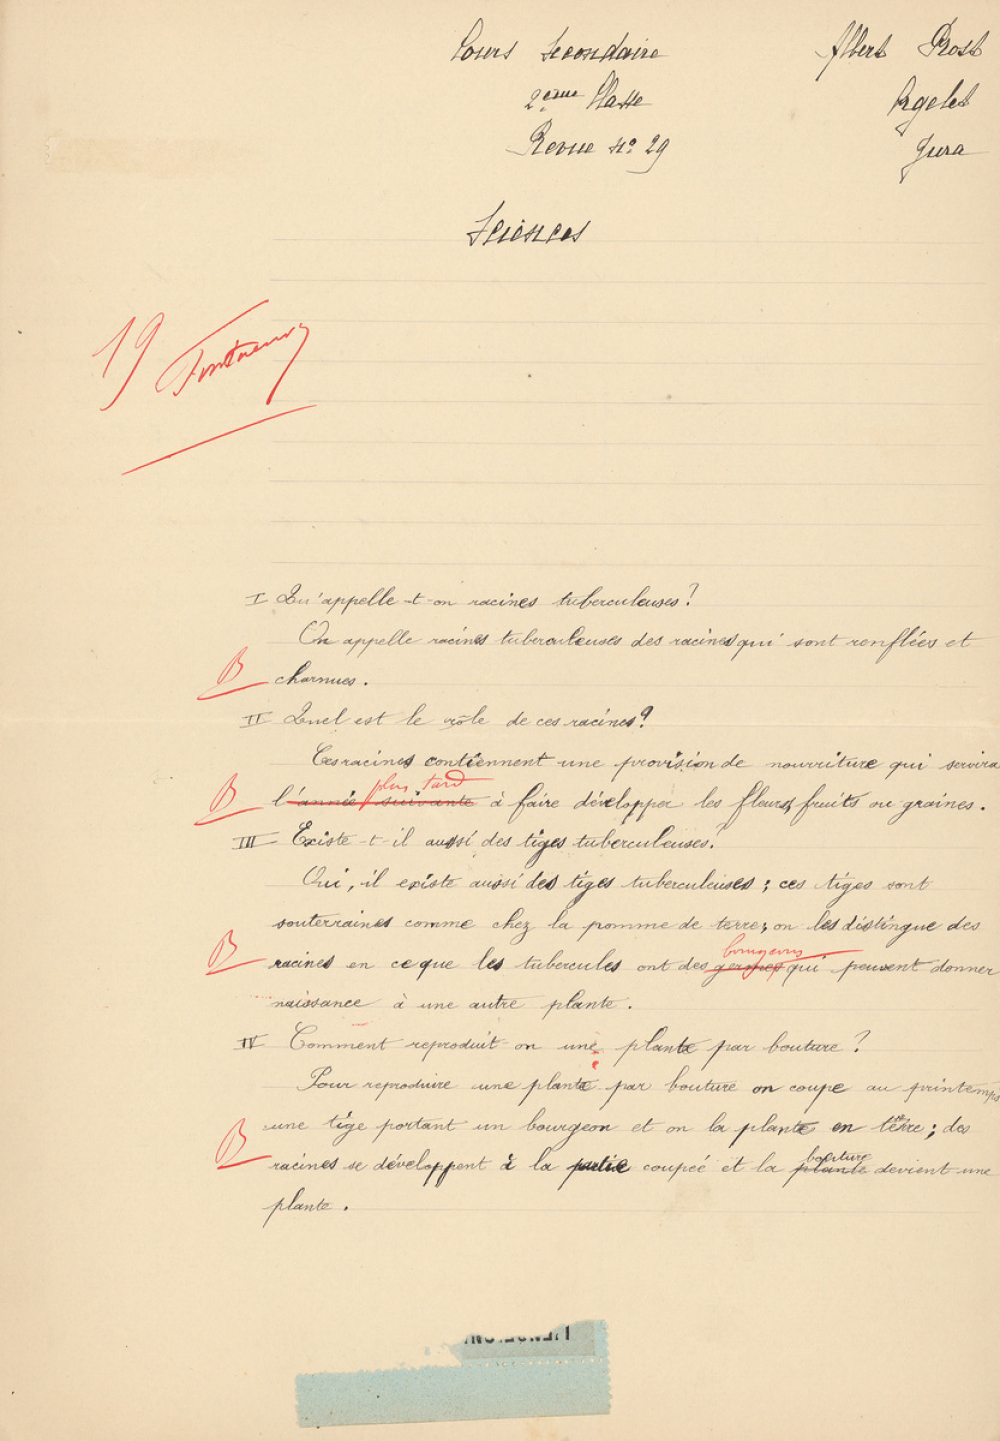 Cours Secondaire
2eme Classe
Revue no 29
Albert Prost
Orgelet
Jura
Sciences
19
I Qu'appelle-t-on racines tuberculeuses?
On appelle racines tuberculeuses des racines qui sont renflées et
B charnues.
II Quel est le rôle de ces racines?
Ces racines contiennent une provision de nourriture qui servira
plus tard
B l'année suivante à faire développer les fleurs, fruits ou graines.
III Existe-t-il aussi des tiges tuberculeuses?
Oui, il existe aussi des tiges tuberculeuses; ces tiges sont
souterraines comme chez la pomme de terre; on les distingue des
bourgeons
B racines en ce que les tubercules ont des germes qui peuvent donner
naissance à une autre plante.
IV Comment reproduit-on une plante par bouture?
Pour reproduire une plante par bouture on coupe au printemps
une tige portant un bourgeon et on la plante en terre; des
bouture
B racines se développent à la partie coupée et la plante devient une
plante.